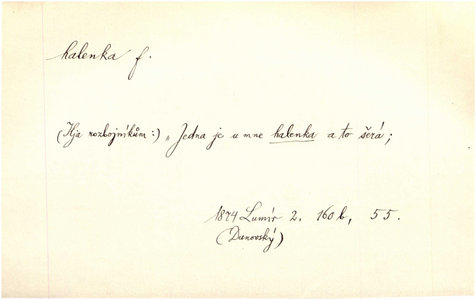 halenka f.
(Ilja rozbojníkům:) „Jedna je u mne halenka a to šerá;
1874 Lumír 2. 160b, 55.
(Dunovský)